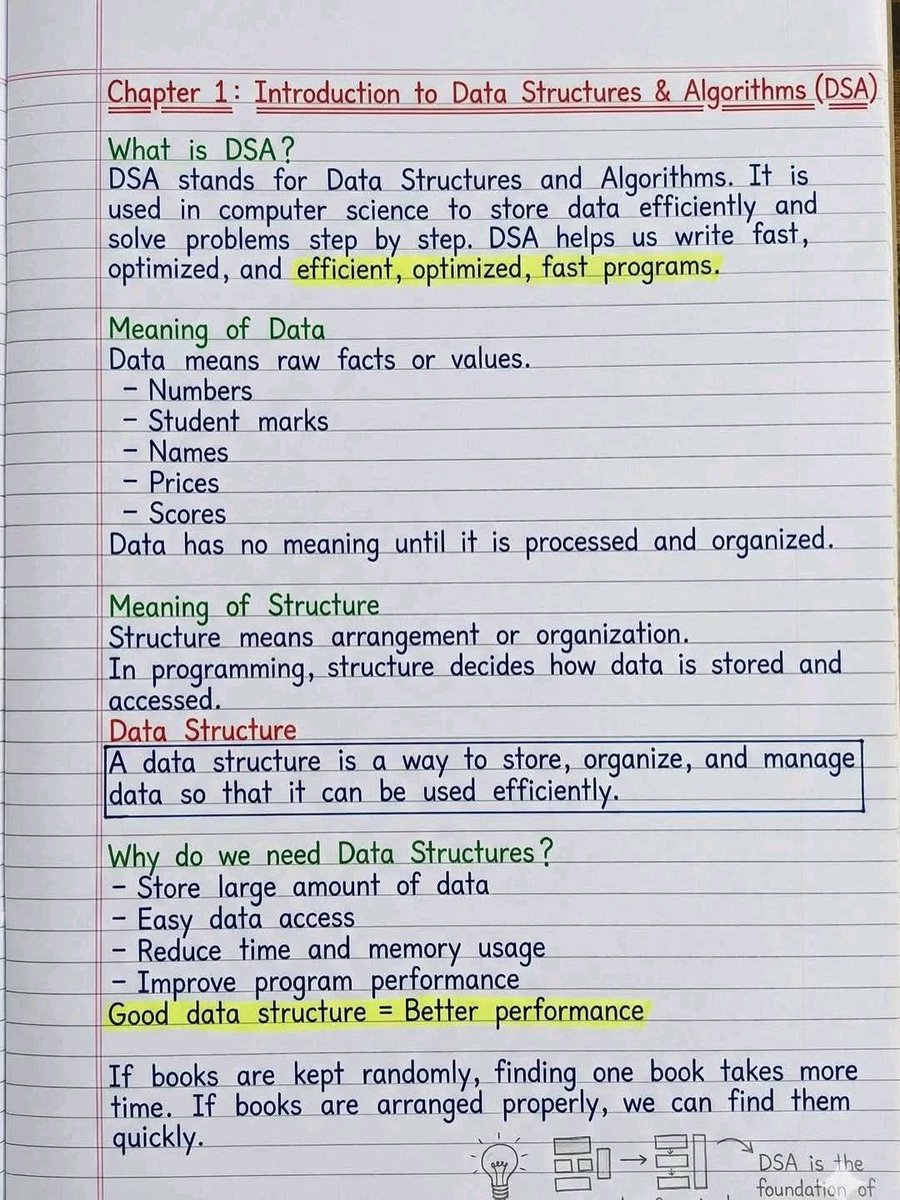 Chapter 1: Introduction to Data Structures & Algorithms (DSA)
What is DSA?
DSA stands for Data Structures and Algorithms. It is
used in computer science to store data efficiently and
solve problems step by step. DSA helps us write fast,
optimized, and efficient, optimized, fast programs.
Meaning of Data
Data means raw facts or values.
– Numbers
– Student marks
– Names
– Prices
– Scores
Data has no meaning until it is processed and organized.
Meaning of Structure
Structure means arrangement or organization.
In programming, structure decides how data is stored and
accessed.
Data Structure
A data structure is a way to store, organize, and manage
data so that it can be used efficiently.
Why do we need Data Structures?
– Store large amount of data
– Easy data access
– Reduce time and memory usage
– Improve program performance
Good data structure = Better performance
If books are kept randomly, finding one book takes more
time. If books are arranged properly, we can find them
quickly.
DSA is the
foundation of